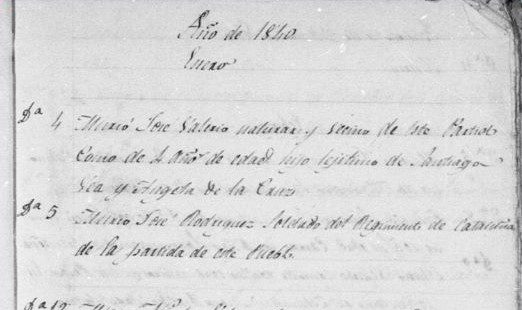 Año de 1840
Enero
Dª 4 Murió Jose Valerio natural y vecino de este Partido
Como de 4 Años de edad hijo lejitimo de Santiago
y Angela de la Cruz
Dª 5 Murio Jose Rodriguez Soldado del Regimiento de
de la partida de este Pueblo
Dª 12